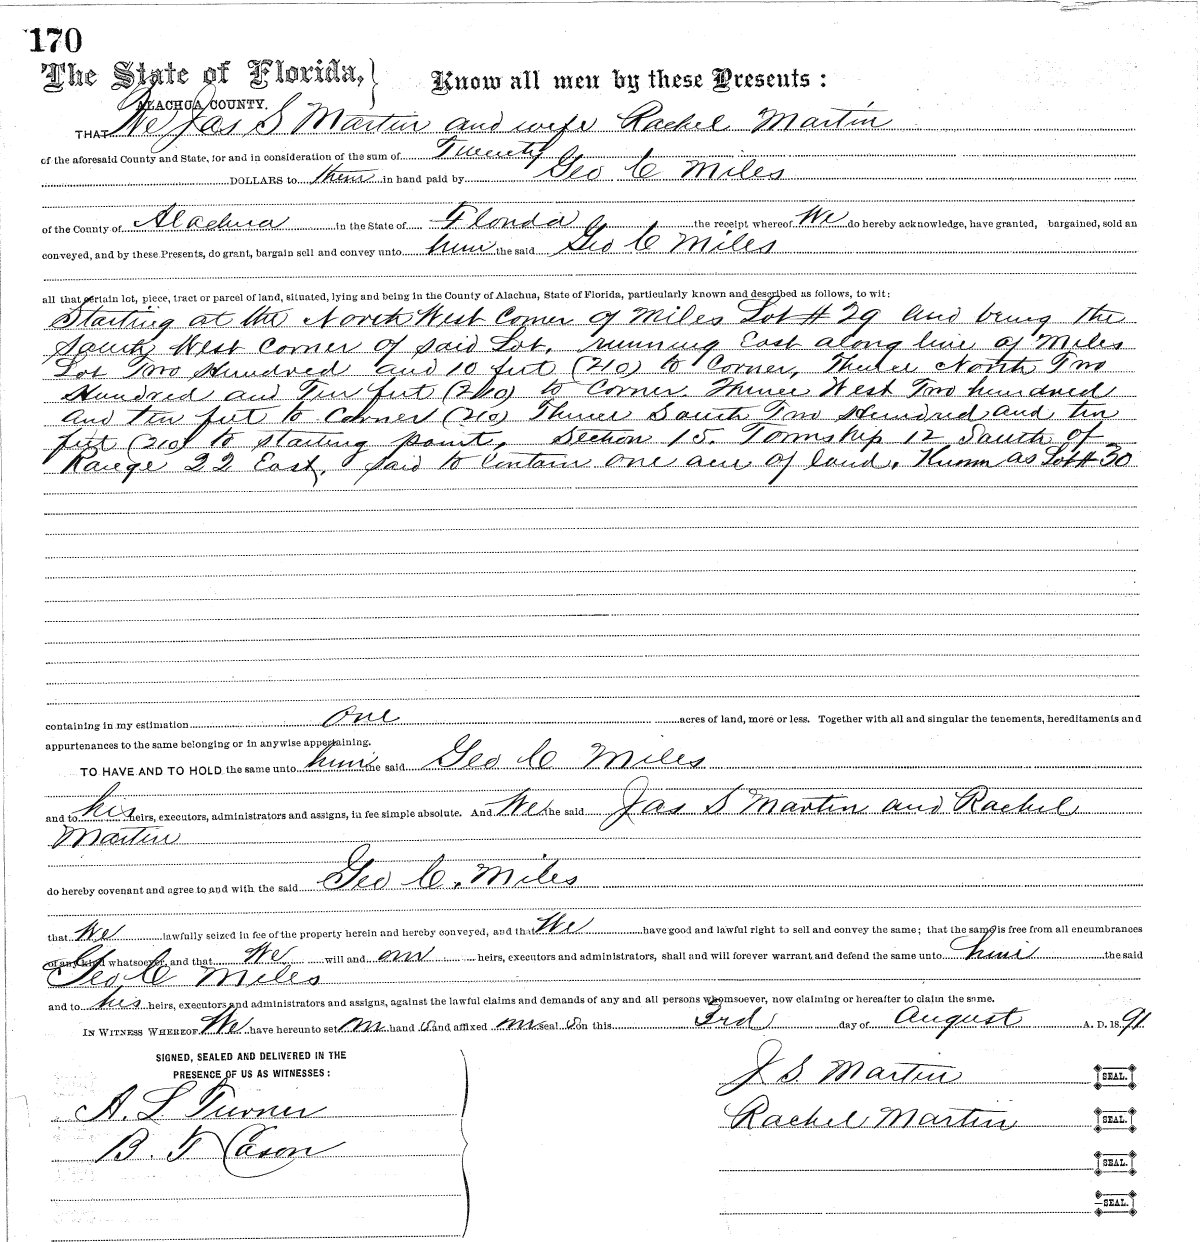 170
The State of Florida,} Know all men by these Presents:
ALACHUA COUNTY.
THAT We Jas S Martin and wife Rachel Martin
of the aforesaid County and State, for and in consideration of the sum of Twenty
DOLLARS to them in hand paid by Geo C Miles
of the County of Alachua in the State of Florida the receipt whereof We do hereby acknowledge, have granted, bargained, sold an
conveyed, and by these Presents, do grant, bargain sell and convey unto him the said Geo C Miles
all that certain lot, piece, tract or parcel of land, situated, lying and being in the County of Alachua, State of Florida, particularly known and described as follows, to wit:
Starting at the North West Corner of Miles Lot # 29 and being the
South West Corner of said Lot, running East along line of Miles
Lot Two Hundred and 10 feet (210) to Corner, Thence North Two
Hundred and Ten feet (210) to Corner Thence West Two hundred
and ten feet to Corner (210) Thence South Two Hundred and ten
feet (210) to starting point, Section 15. Township 12 South of
Range 22 East, said to contain one acre of land, Known as Lot # 30
containing in my estimation one acres of land, more or less. Together with all and singular the tenements, hereditaments and
appurtenances to the same belonging or in anywise appertaining.
TO HAVE AND TO HOLD the same unto him the said Geo C Miles
and to his heirs, executors, administrators and assigns, in fee simple absolute. And We the said Jas S Martin and Rachel
Martin
do hereby covenant and agree to and with the said Geo C. Miles
that We lawfully seized in fee of the property herein and hereby conveyed, and that We have good and lawful right to sell and convey the same; that the same is free from all encumbrances
of any kind whatsoever, and that We will and our heirs, executors and administrators, shall and will forever warrant and defend the same unto him the said
Geo C Miles
and to his heirs, executors and administrators and assigns, against the lawful claims and demands of any and all persons whomsoever, now claiming or hereafter to claim the same.
IN WITNESS WHEREOF We have hereunto set our hand s and affixed our seal s on this 3rd day of August A. D. 18 91
SIGNED, SEALED AND DELIVERED IN THE
PRESENCE OF US AS WITNESSES:
J S. Martin SEAL.
A. L Turner
Rachel Martin SEAL.
B. F Cason
SEAL.
SEAL.